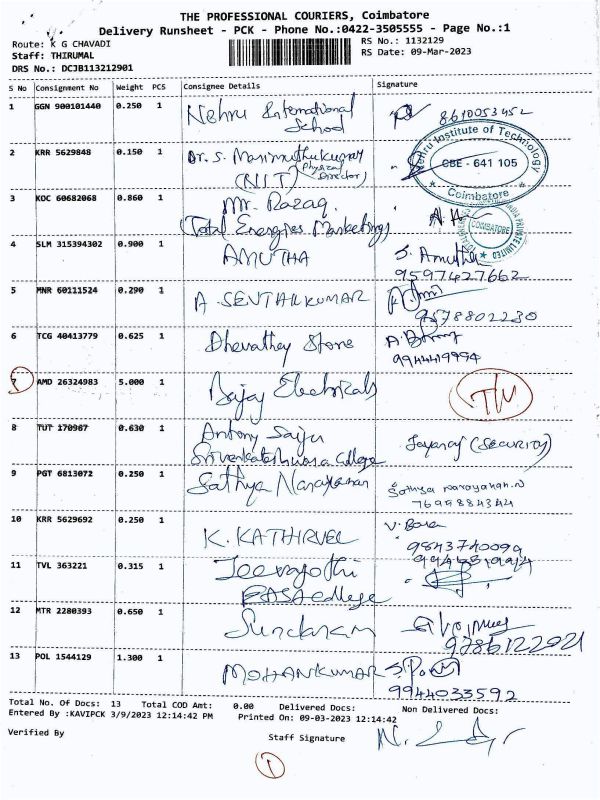 THE PROFESSIONAL COURIERS, Coimbatore
Delivery Runsheet - PCK - Phone No.:0422-3505555 - Page No.:1
Route: K G CHAVADI
RS No.: 1132129
Staff: THIRUMAL
RS Date: 09-Mar-2023
DRS No.: DCJB113212901
S No Consignment No Weight PCS Consignee Details Signature
1 GGN 900101440 0.250 1 Nehru International
School
8610053452
2 KRR 5629848 0.150 1 Dr. S. Marimuthukumar
(NIT) (Physical Director)
Nehru Institute of Technology
CBE - 641 105
Coimbatore
3 KOC 60682068 0.860 1 Mr. Razaq
(Total Energies Marketing)
COIMBATORE
4 SLM 315394302 0.900 1 AMUTHA
S. Amutha
9597427662
5 MNR 60111524 0.290 1 A. SENTHILKUMAR
9578802230
6 TCG 40413779 0.625 1 Dhevathey Store
9944419994
7 AMD 26324983 5.000 1 Bajaj Electricals
8 TUT 170987 0.630 1 Antony Saiju
Sri venkateshwara College
Jayaraj (SECURITY)
9 PGT 6813072 0.250 1 Sathya Narayanan
Sathya narayanan.n
7699884344
10 KRR 5629692 0.250 1 K. KATHIRVEL
9843740099
11 TVL 363221 0.315 1 Jeevajothi
College
12 MTR 2280393 0.650 1 Sundaram
9786122021
13 POL 1544129 1.300 1 MOHANKUMAR
9944033592
Total No. Of Docs: 13 Total COD Amt: 0.00 Delivered Docs: Non Delivered Docs:
Entered By :KAVIPCK 3/9/2023 12:14:42 PM Printed On: 09-03-2023 12:14:42
Verified By
Staff Signature
1